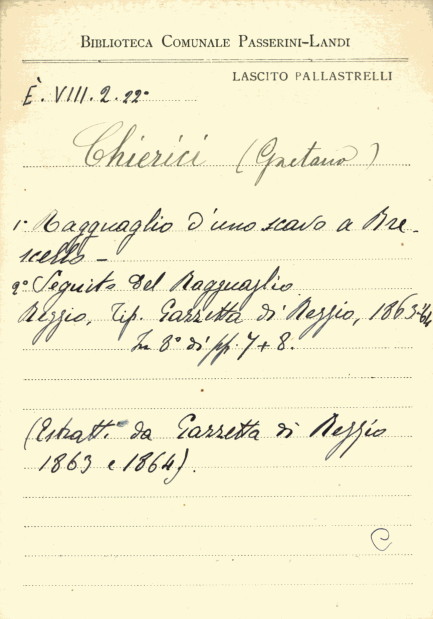 BIBLIOTECA COMUNALE PASSERINI-LANDI
LASCITO PALLASTRELLI
È. VIII. 2. 22º
Chierici (Gaetano)
1º Ragguaglio d'uno scavo a Bre-
scello -
2º Seguito del Ragguaglio
Reggio, Tip. Gazzetta di Reggio, 1863-64
In 8º di pp. 7 + 8.
(Estratt. da Gazzetta di Reggio
1863 e 1864).
C